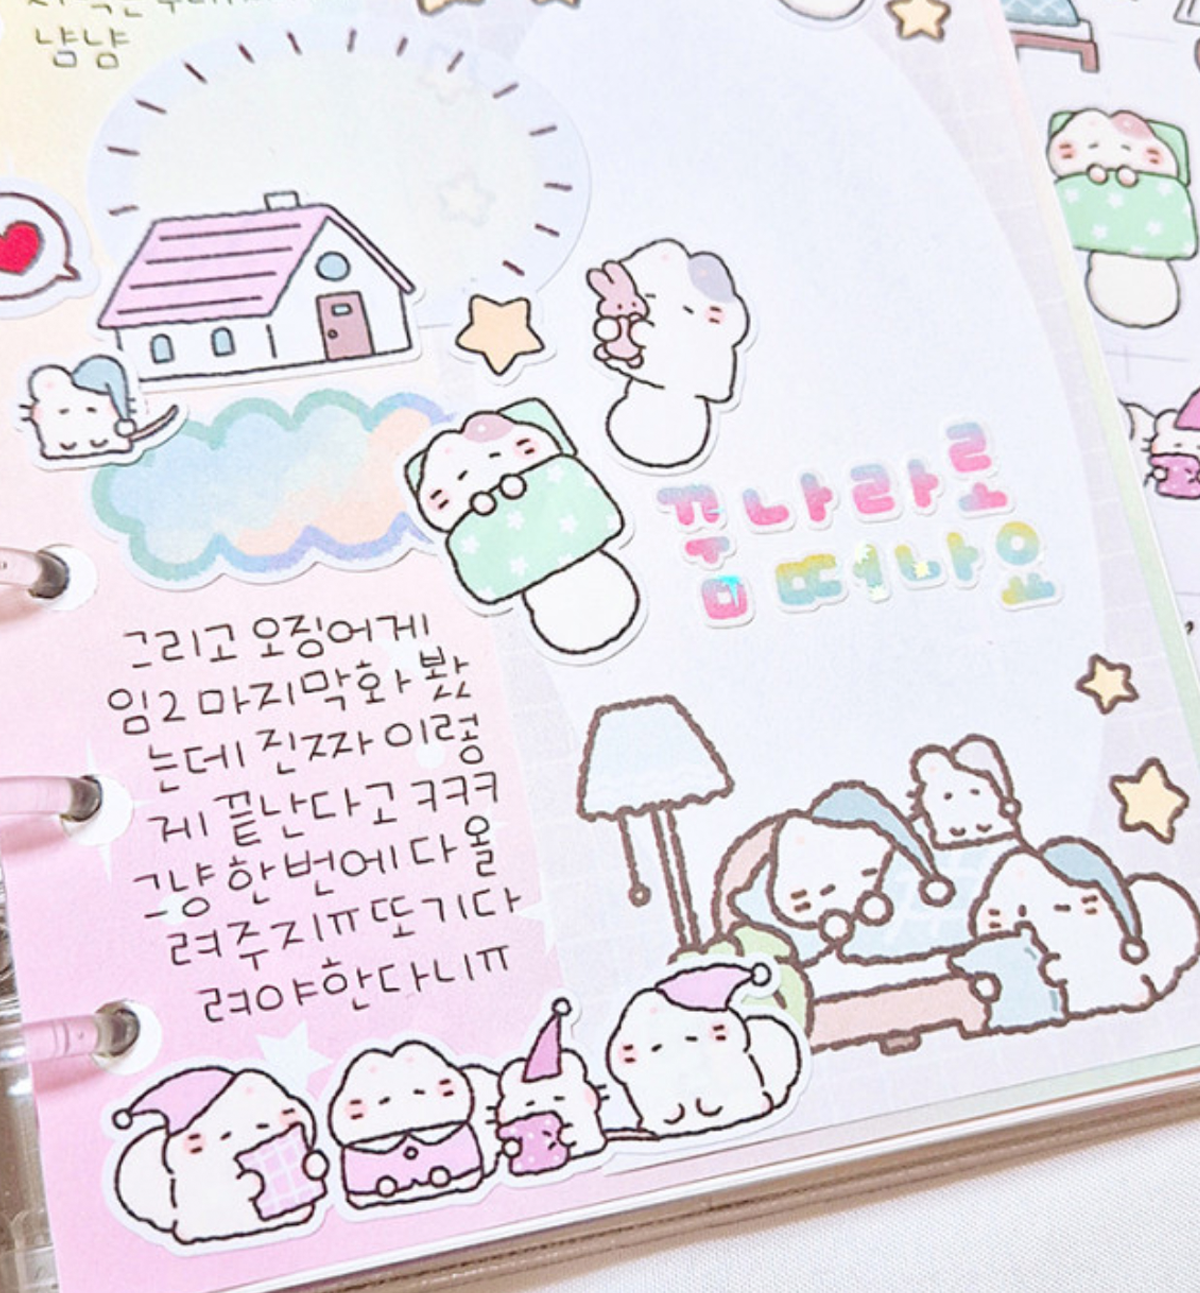 냠냠
그리고 오징어게
임2 마지막화 봤
는데 진짜 이렇
게 끝난다고 ㅋㅋㅋ
그냥 한번에 다 올
려주지ㅠ 또 기다
려야한다니ㅠ
꿈나라로
떠나용